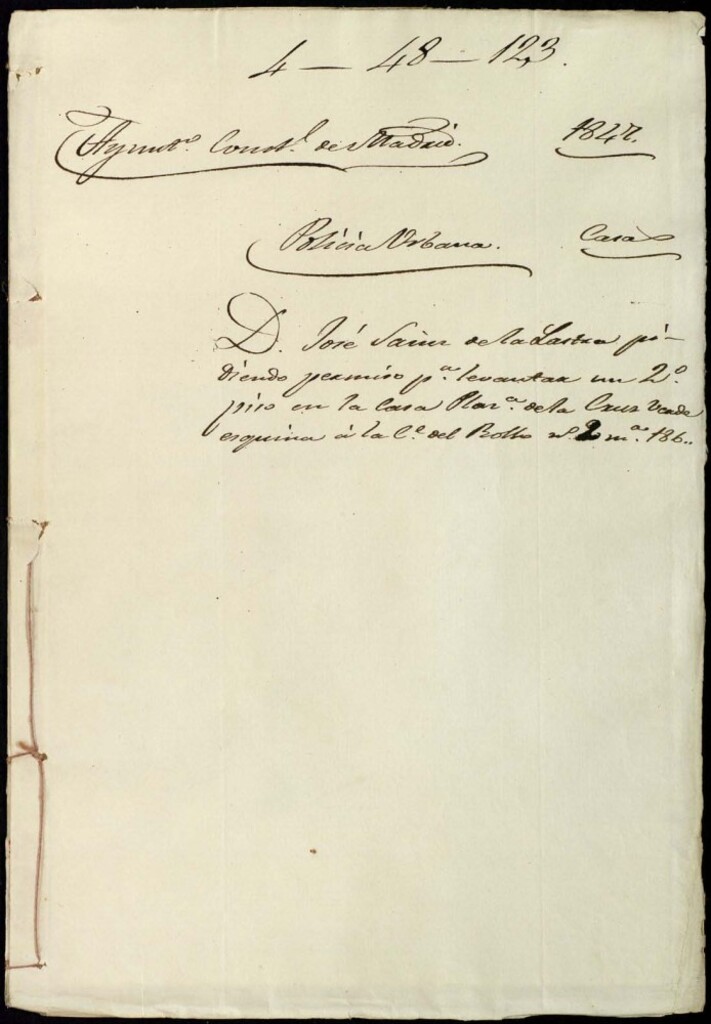 4 — 48 — 123.
Ayunt.º Const.l de Madrid. 1847.
Policia Urbana. Casas
D. José Sainz de la Lastra pi-
diendo permiso p.ª levantar un 2.º
piso en la casa Plaz.ª de la Cruz Verde
esquina á la C.e del Rollo n.º 2 m.ª 186..